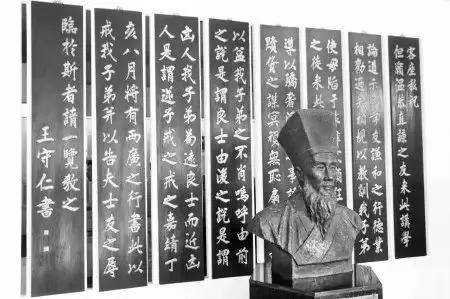 客座私祝
但願溫恭直諒之友來此講學
論道示以孝友謙和之行德業
相勸過失相規以教訓我子弟
使毋陷于非
之徒來此
導以驕奢
黷貨之謀冥頑無恥扇
以益我子弟之不肖嗚呼由前
之說是謂良士由後之說是謂
凶人我子弟苟遠良士而近凶
人是謂逆子戒之戒之嘉靖丁
亥八月將有兩廣之行書此以
戒我子弟并以告夫士友之辱
臨於斯者請一覽教之
王守仁書